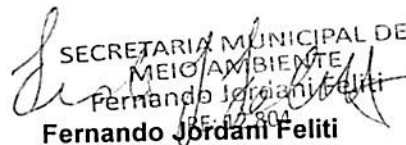 SECRETARIA MUNICIPAL DE
MEIO AMBIENTE
Fernando Jordani Feliti
RE: 12.804
Fernando Jordani Feliti